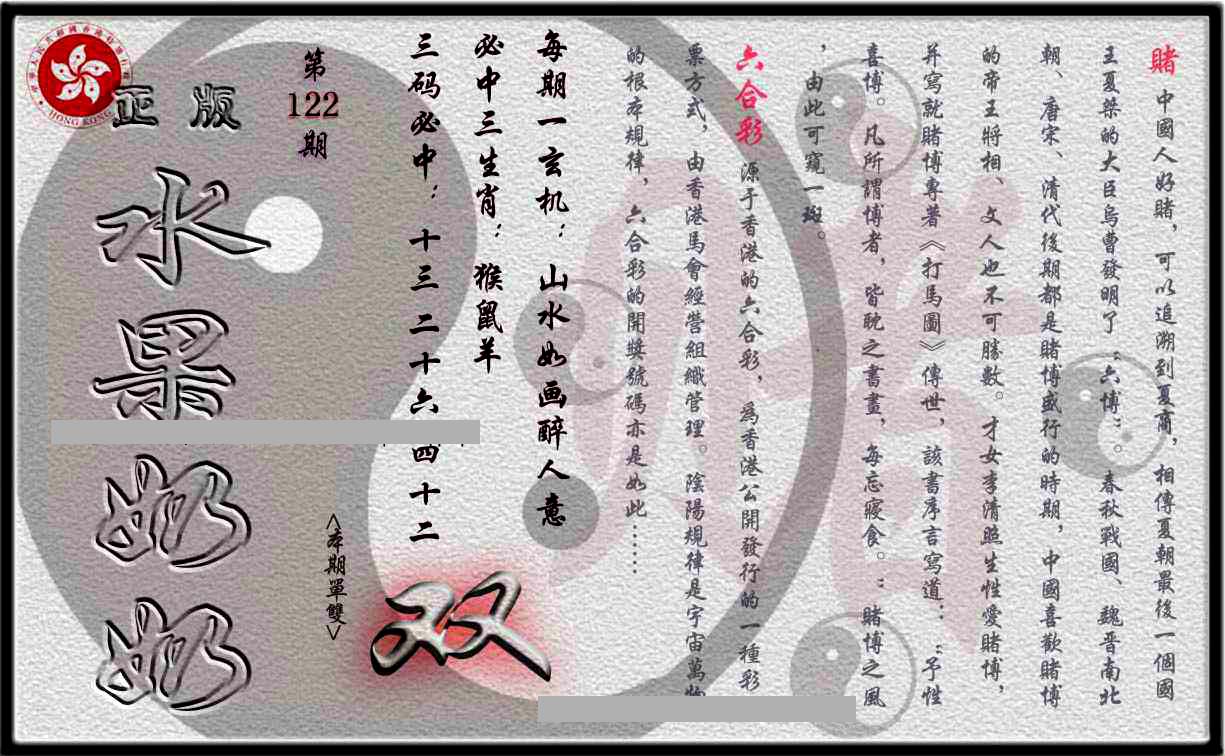 賭 中國人好賭，可以追溯到夏商，相傳夏朝最後一個國
王夏桀的大臣烏曹發明了“六博”。春秋戰國、魏晉南北
朝、唐宋、清代後期都是賭博盛行的時期，中國喜歡賭博
的帝王將相、文人也不可勝數。才女李清照生性愛賭博，
并寫就賭博專著《打馬圖》傳世，該書序言寫道：“予性
喜博。凡所謂博者，皆耽之書畫，每忘寢食。”賭博之風
，由此可窺一斑。
六合彩 源于香港的六合彩，為香港公開發行的一種彩
票方式，由香港馬會經營組織管理。陰陽規律是宇宙萬物
的根本規律，六合彩的開獎號碼亦是如此……
每期一玄机：山水如画醉人意
必中三生肖：猴鼠羊
三码必中：十三 二十六 四十二
第122期
<本期單雙>
双
正版
水果奶奶
HONG KONG